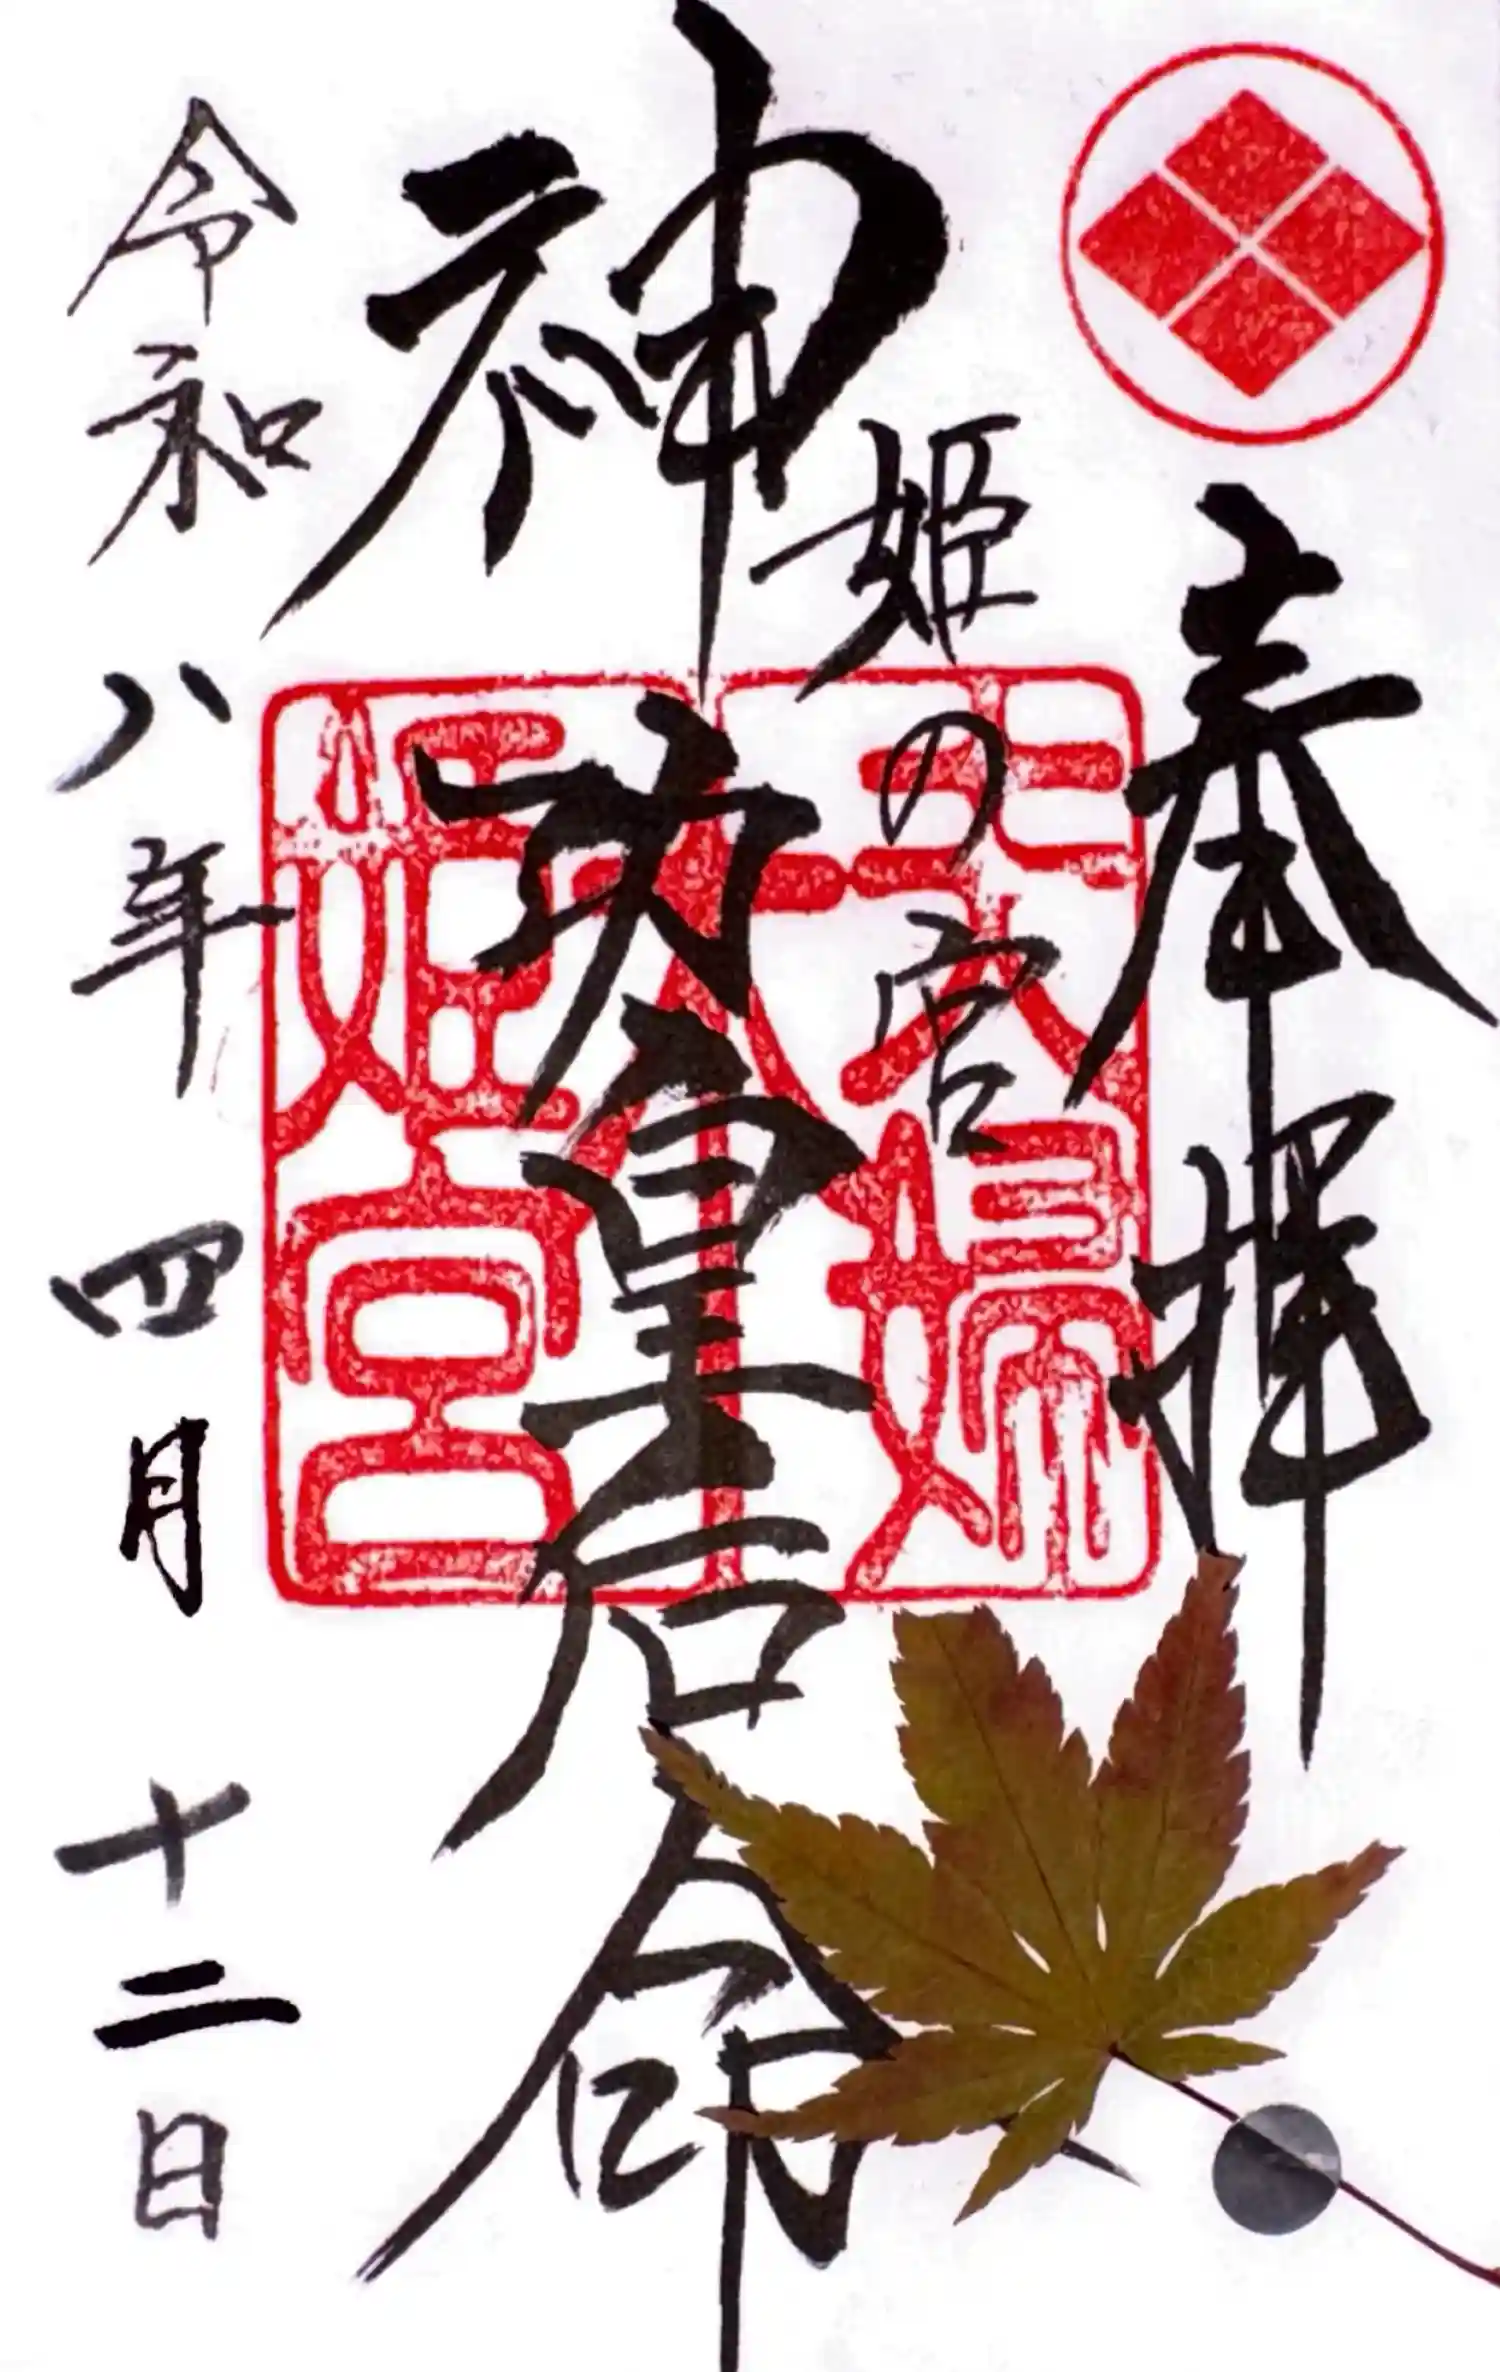 奉拝
姫の宮
神功皇后命
令和八年四月十二日
姫宮